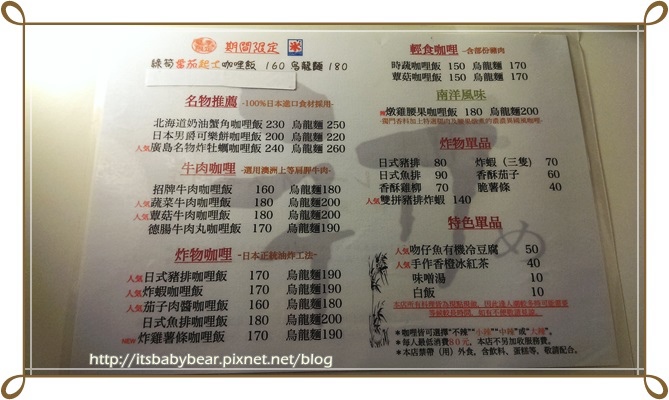 期間限定
綠筍番茄起士咖哩飯 160 烏龍麵 180
名物推薦 -100%日本進口食材採用-
北海道奶油蟹角咖哩飯 230 烏龍麵 250
日本男爵可樂餅咖哩飯 200 烏龍麵 220
人氣 廣島名物炸牡蠣咖哩飯 240 烏龍麵 260
牛肉咖哩 -選用澳洲上等肩胛牛肉-
招牌牛肉咖哩飯 160 烏龍麵180
人氣 蔬菜牛肉咖哩飯 180 烏龍麵 200
人氣 蕈菇牛肉咖哩飯 180 烏龍麵 200
德腸牛肉丸咖哩飯 170 烏龍麵 190
炸物咖哩 -日本正統油炸工法-
人氣 日式豬排咖哩飯 170 烏龍麵190
人氣 炸蝦咖哩飯 170 烏龍麵190
人氣 茄子肉醬咖哩飯 160 烏龍麵 180
日式魚排咖哩飯 180 烏龍麵 200
NEW 炸雞薯條咖哩飯 170 烏龍麵 190
輕食咖哩 -含部份雞肉
時蔬咖哩飯 150 烏龍麵 170
蕈菇咖哩飯 150 烏龍麵 170
南洋風味
燉雞腰果咖哩飯 180 烏龍麵200
炸物單品
日式豬排 80 炸蝦(三隻) 70
日式魚排 90 香酥茄子 60
香酥雞柳 70 脆薯條 40
人氣 雙拼豬排炸蝦 140
特色單品
人氣 吻仔魚有機冷豆腐 50
人氣 手作香橙冰紅茶 40
味噌湯 10
白飯 10
本店所有料理皆為現點現做，因此達人潮較多時可能需要
等候較長時間，如有不便敬請見諒。
*咖哩皆可選擇"不辣""小辣""中辣"或"大辣"。
*每人最低消費80元，本店不另加收服務費。
*本店禁帶（用）外食，含飲料、蛋糕等，敬請配合。
http://itsbabybear.pixnet.net/blog